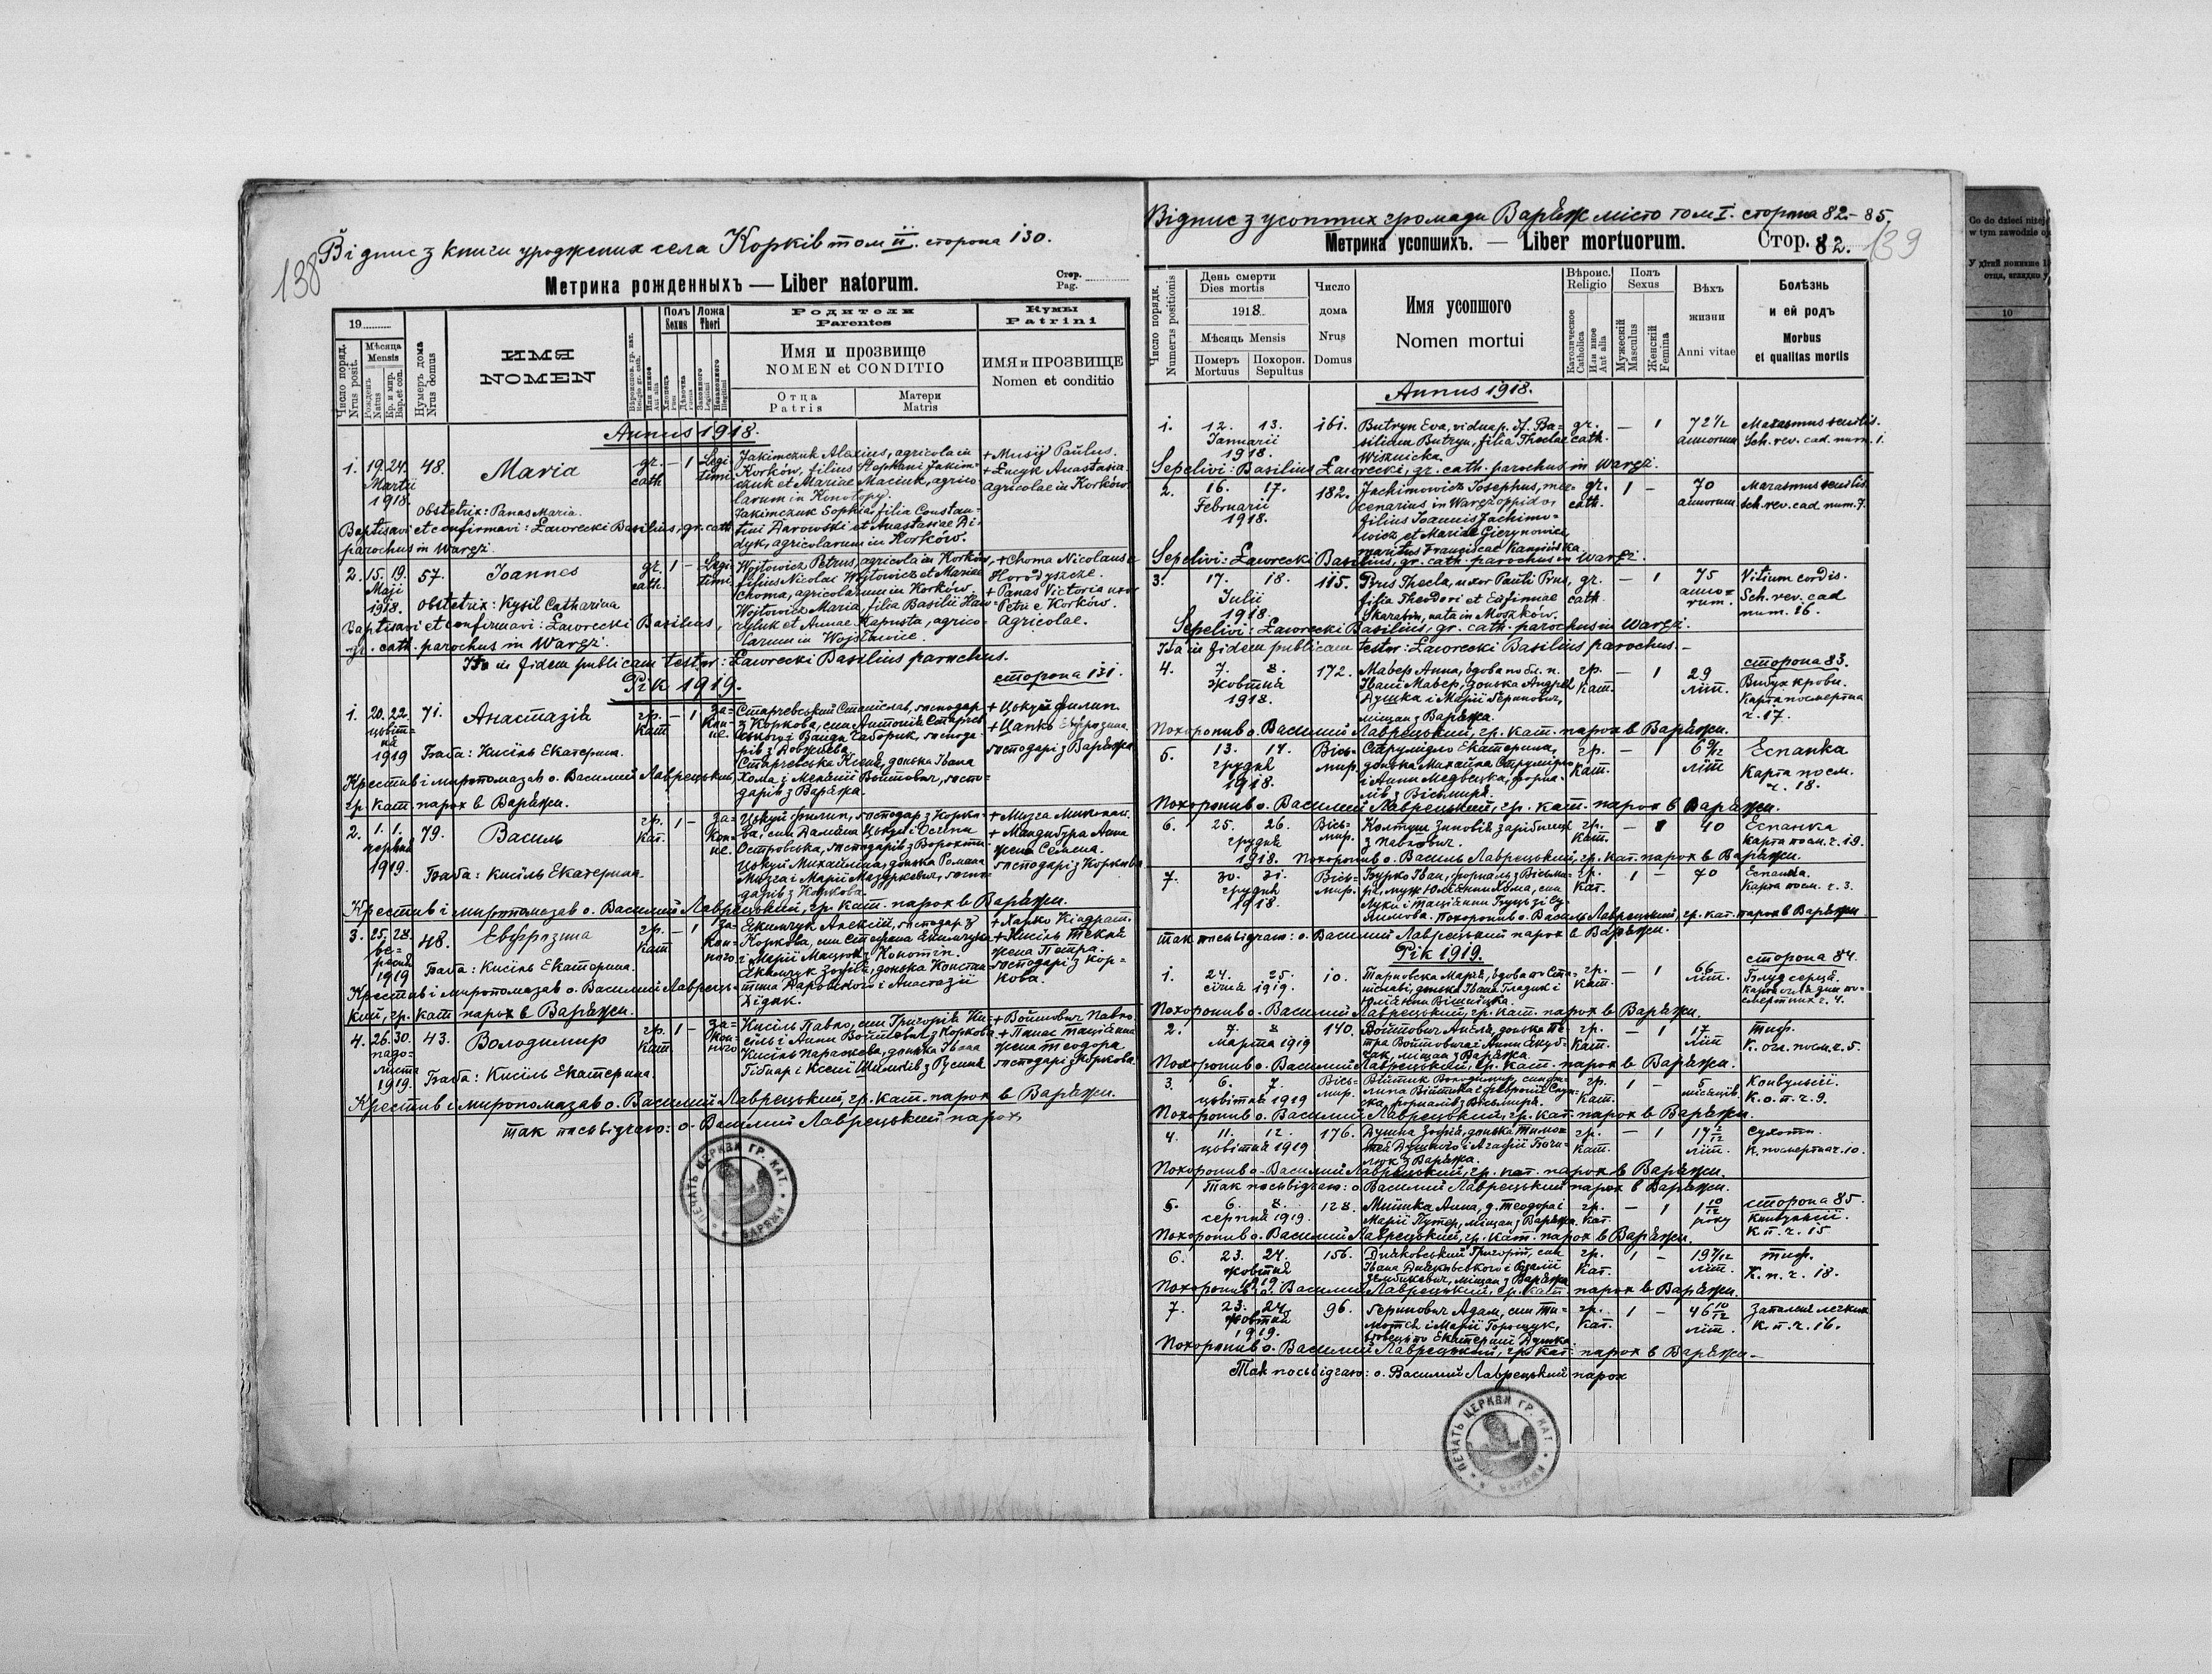 138
Відпис з книги уроджених села Корків том ІІ. сторона 130.
Метрика рожденныхъ — Liber natorum.
Стор.
Pag.
19
Число поряд.
Nrus posit.
Мѣсяца
Mensis
Рожденъ
Natus
Кр. и мир.
Bap. et con.
Нумеръ дома
Nrus domus
ИМЯ
NOMEN
Полъ
Sexus
Ложа
Thori
Родители
Parentes
Имя и прозвище
NOMEN et CONDITIO
Отца
Patris
Матери
Matris
Кумы
Patrini
ИМЯ и ПРОЗВИЩЕ
Nomen et conditio
Annus 1918.
1. 19. 24. 48. Maria gr. cath. – 1 Legitimi
Martii
1918.
Jakimczuk Alexius, agricola in
Korków, filius Stephani Jakim=
czuk et Mariae Maciuk, agrico=
larum in Konotopy.
Jakimczuk Sophia, filia Constan=
tini Darowski et Anastasiae Di=
dyk, agricolarum in Korków.
+ Musij Paulus.
+ Łucyk Anastasia.
Agricolae in Korków
Obstetrix: Panas Maria.
Baptisavi et confirmavi: Ławrecki Basilius, gr. cath.
parochus in Waręż.
2. 15. 19. 57. Joannes gr. cath. 1 – Legitimi
Maji
1918.
Wojtowicz Petrus, agricola in Korków,
filius Nicolai Wojtowicz et Mariae
Choma, agricolarum in Korków.
Wojtowicz Maria, filia Basilii Haw=
ryluk et Annae Kapusta, agrico=
larum in Wojsławice.
+ Choma Nicolaus e
Horodyszcze.
+ Panas Victoria uxor
Petri e Korków.
Agricolae.
Obstetrix: Kysil Catharina
Baptisavi et confirmavi: Ławrecki Basilius,
gr. cath. parochus in Waręż.
Ita in fidem publicam testor: Ławrecki Basilius parochus.
Рік 1919.
сторона 131.
1. 20. 22. 71. Анастазія гр. кат. – 1
цьвіт=
ня
1919
Старчевський Станіслав, господар
з Коркова, син Антонія Старчев
Хома і Меланії Войтович, госпо=
дарів з Варяжа.
+ Цькуй Филип.
+ Цапко Евфрозина
господарі з Варяжа
Баба: Кисіль Екатерина.
Крестив і миропомазав о. Василий Лаврецький,
гр. кат. парох в Варяжи.
2. 1. 1. 79. Василь гр. кат. 1 –
червня
1919.
Цькуй Филип, господар з Корко=
ва, син Дамяна Цькуя і Осипи
Островська, господарів з Ворохти.
Цькуй Михайлина, донька Романа
Музга і Марії Мазуркевич, госпо=
дарів з Коркова.
+ Мандибура Анна
жена Семена.
господарі з Коркова
Баба: Кисіль Екатерина.
Крестив і миропомазав о. Василий Лаврецький, гр. кат. парох в Варяжи.
3. 25. 28. 48. Евфрозина гр. кат. – 1 законного
ве=
ресня
1919
Екимчук Алексій, господар з
Коркова, син Стефана Екимчука
і Марії Мацюк з Конотіп.
Екимчук Зофія, донька Констан=
тина Даровского і Анастазії
Дідик.
+ Харко Кіндрат.
+ Кисіль Текля
жена Петра.
господарі з Кор=
кова.
Баба: Кисіль Екатерина.
Крестив і миропомазав о. Василий Лаврець=
кий, гр. кат парох в Варяжи.
4. 26. 30. 43. Володимир гр. кат. 1 – законного
падо=
листа
1919.
Кисіль Павло, син Григорія Ки=
сіль і Анни Войтович з Коркова
Кисіль Параскева, донька Івана
+ Войтович Павло.
+ Панас Таціянна
жена Теодора
господарі з Коркова
Баба: Кисіль Екатерина.
Крестив і миропомазав о. Василий Лаврецький, гр. кат. парох в Варяжи.
так посьвідчаю: о. Василий Лаврецький парох
ПЕЧАТЬ ЦЕРКВИ ГР. КАТ. ВАРЯЖИ
Відпис з усопших громади Варяж місто том I. сторона 82-85.
Метрика усопшихъ. — Liber mortuorum.
Стор. 82.
139
Число порядк.
Numerus positionis
День смерти
Dies mortis
1918
Мѣсяць Mensis
Померъ
Mortuus
Похорон.
Sepultus
Число
дома
Nrus
Domus
Имя усопшого
Nomen mortui
Вѣроис.
Religio
Католическое
Catholica
Или иное
Aut alia
Полъ
Sexus
Мужескій
Masculus
Женскій
Femina
Вѣкъ
жизни
Anni vitae
Болѣзнь
и ей родъ
Morbus
et qualitas mortis
Annus 1918.
1. 12. 13. 161. Butryn Eva, vidua p. d. Ba= gr. – 1 72 1/2 Marasmus senilis.
Januarii silium Butryn, filia Theclae cath. annorum Sch. rev. cad. num. 1.
1918. Wisznicka.
Sepelivi: Basilius Ławrecki, gr. cath. parochus in Waręż.
2. 16. 17. 182. Jachimowicz Josephus, mer= gr. 1 – 70 Marasmus senilis.
Februarii cenarius in Waręż oppido, cath. annorum Sch. rev. cad. num. 7.
1918. filius Joannis Jachimo=
wicz et Mariae Gierynowicz,
maritus Franciscae Kamińska.
Sepelivi: Ławrecki Basilius, gr. cath. parochus in Waręż.
3. 17. 18. 115. Prus Thecla, uxor Pauli Prus, gr. – 1 75 Vitium cordis.
Julii filia Theodori et Eufimiae cath. anno=rum. Sch. rev. cad
1918. Skarabin, nata in Moszków. num. 16.
Sepelivi: Ławrecki Basilius, gr. cath. parochus in Waręż.
Ita in fidem publicam testor: Ławrecki Basilius parochus.
сторона 83.
4. 7. 8. 172. Мавер Анна, вдова по бл. п. гр. – 1 29 Вибух крови.
жовтня Івані Мавер, донька Андрея кат. літ. Карта посмертна
1918. Душка і Марії Геринович, ч. 17.
міщан з Варяжа.
Похоронив о. Василий Лаврецький, гр. кат. парох в Варяжи.
5. 13. 14. Вісь=мир. Струмідло Екатерина, гр. – 1 6 9/12 Еспанка
грудня донька Михайла Струмідло кат. літ Карта посм.
1918. і Анни Медвецка, форна= ч. 18.
лів з Вісьмира.
Похоронив о. Василий Лаврецький, гр. кат. парох в Варяжи.
6. 25. 26. Вісь=мир. Колтун Зиновія зарібниця гр. – 1 40 Еспанка
грудня з Павлович. кат. Карта посм. ч. 19.
1918. Похоронив о. Василь Лаврецький, гр. кат. парох в Варяжи.
7. 30. 31. Вісь=мир. Бурко Іван, форналь з Вісьми= гр. 1 – 40 Еспанка.
грудня ра, муж Юліянни Хома, син кат. Карта посм. ч. 3.
1918 Луки і Таціянни
Похоронив о. Василь Лаврецький, гр. кат. парох в Варяжи
так посьвідчаю: о. Василий Лаврецький парох в Варяжи.
Рік 1919.
сторона 84.
1. 24. 25. 10. Тарновска Марія, вдова по Ста= гр. – 1 66 літ. Блуд серця.
січня 1919. ніславі, донька Івана Гладик і кат. Карта
Юліянни Вішніцка. смертних ч. 4.
Похоронив о. Василий Лаврецький, гр. кат. парох в Варяжи.
2. 7. 8 140. Войтович Анеля, донька Пе= гр. – 1 17 літ тиф.
марта 1919 тра Войтовича і Анни кат. К. огл. посм. ч. 5.
міщан з Варяжа.
Похоронив о. Василий Лаврецький, гр. кат. парох в Варяжи.
3. 6. 7. Вісь=мир. Війтик Володимир, син Фи= гр. 1 – 5 місяців. Конвульсії.
цьвітня 1919 липа Війтика і кат. К. о. п. ч. 9.
форналів з Вісьмира.
Похоронив о. Василий Лаврецький, гр. кат. парох в Варяжи.
4. 11. 12. 176. Душна Зофія, донька Тимо= гр. – 1 17 2/12 літ. Сухоти.
цьвітня 1919 тея Душного і Агафії кат. К. посмертна ч. 10.
з Варяжа.
Похоронив о. Василий Лаврецький, гр. кат. парох в Варяжи.
Так посьвідчаю: о. Василий Лаврецький парох в Варяжи.
сторона 85.
5. 6. 8. 128. Мишка Анна, д. Теодора і гр. – 1 1 10/12 року Конвульсії.
серпня 1919. Марії Путер, міщан з Варяжа. кат. К. п. ч. 15
Похоронив о. Василий Лаврецький, гр. кат. парох в Варяжи.
6. 23. 24. 156. Дичковський Григорій, син гр. 1 – 19 7/12 літ. тиф.
жовтня Івана Дичковського і Розалії кат. К. п. ч. 18.
1919. міщан з Варяжа
Похоронив о. Василий Лаврецький, гр. кат. парох в Варяжи.
7. 23. 24. 96. Геринович Адам, син Ти= гр. 1 – 46 10/12 літ. Запаленя легких
жовтня мотея і Марії Горощук, кат. К. п. ч. 16.
1919. вдовець по Екатерині Душка
Похоронив о. Василий Лаврецький, гр. кат. парох в Варяжи.
Так посьвідчаю: о. Василий Лаврецький парох
ПЕЧАТЬ ЦЕРКВИ ГР. КАТ. ВАРЯЖИ
Co do dzieci
w tym zawodzie
10